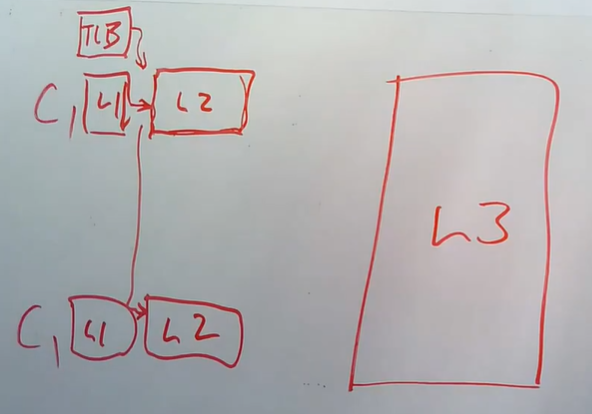 TLB
C1 L1 L2
L3
C1 L1 L2